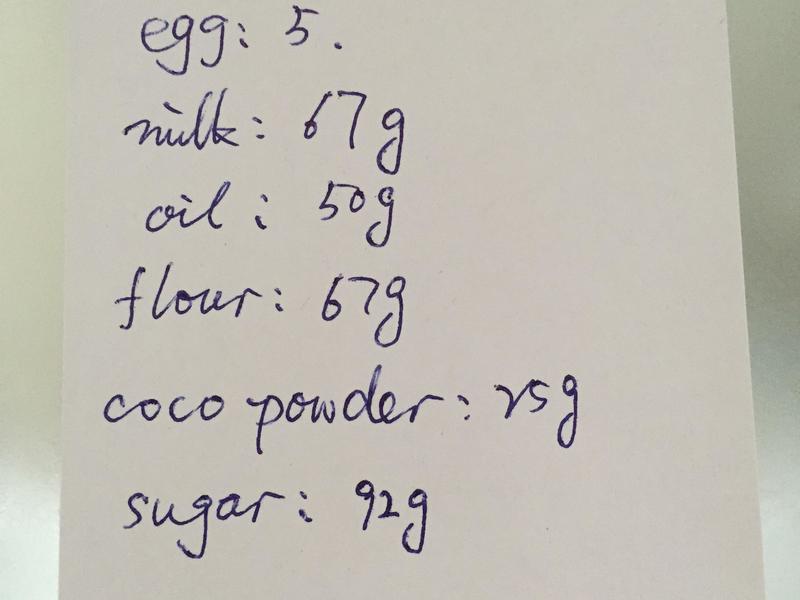 egg: 5.
milk: 67g
oil: 50g
flour: 67g
coco powder: 25g
sugar: 92g